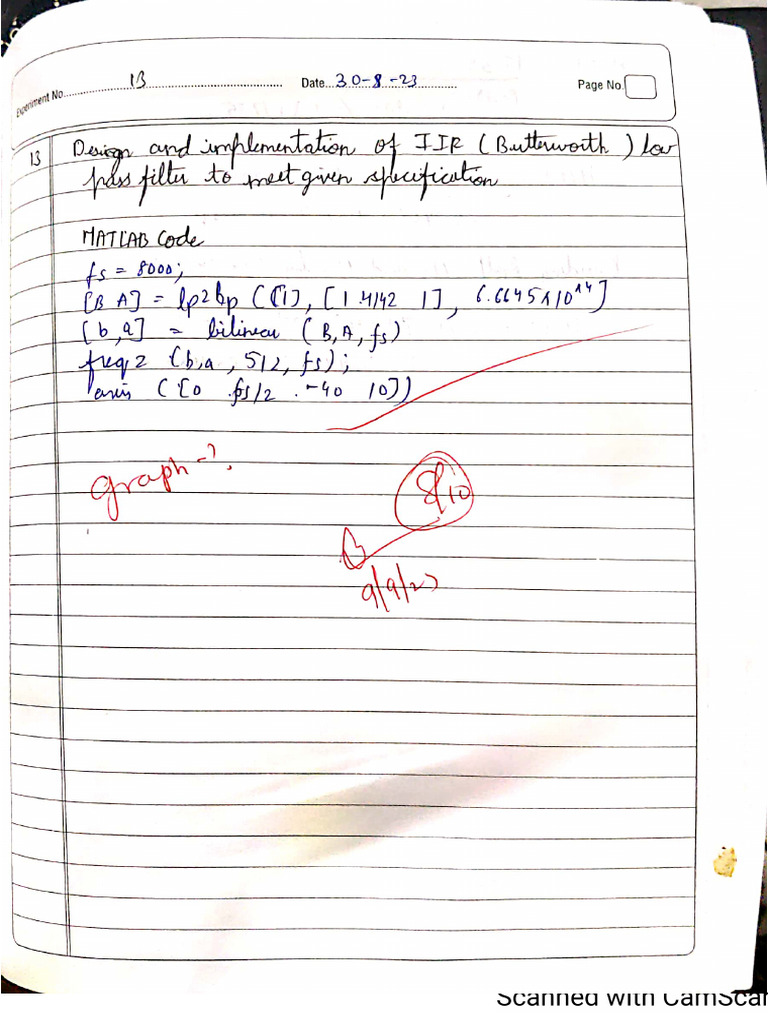 Experiment No. 13 Date. 30-8-23 Page No.
13 Design and implementation of IIR (Butterworth) low
pass filter to meet given specification
MATLAB Code
fs = 8000;
[B A] = lp2bp ([1], [1.4142 1], 6.6645*10^14]
[b,a] = bilinear (B,A, fs)
freqz (b,a, 512, fs);
axis ([0 fs/2 -40 10])
graph-?
8/10
9/9/23
Scanned with CamScan